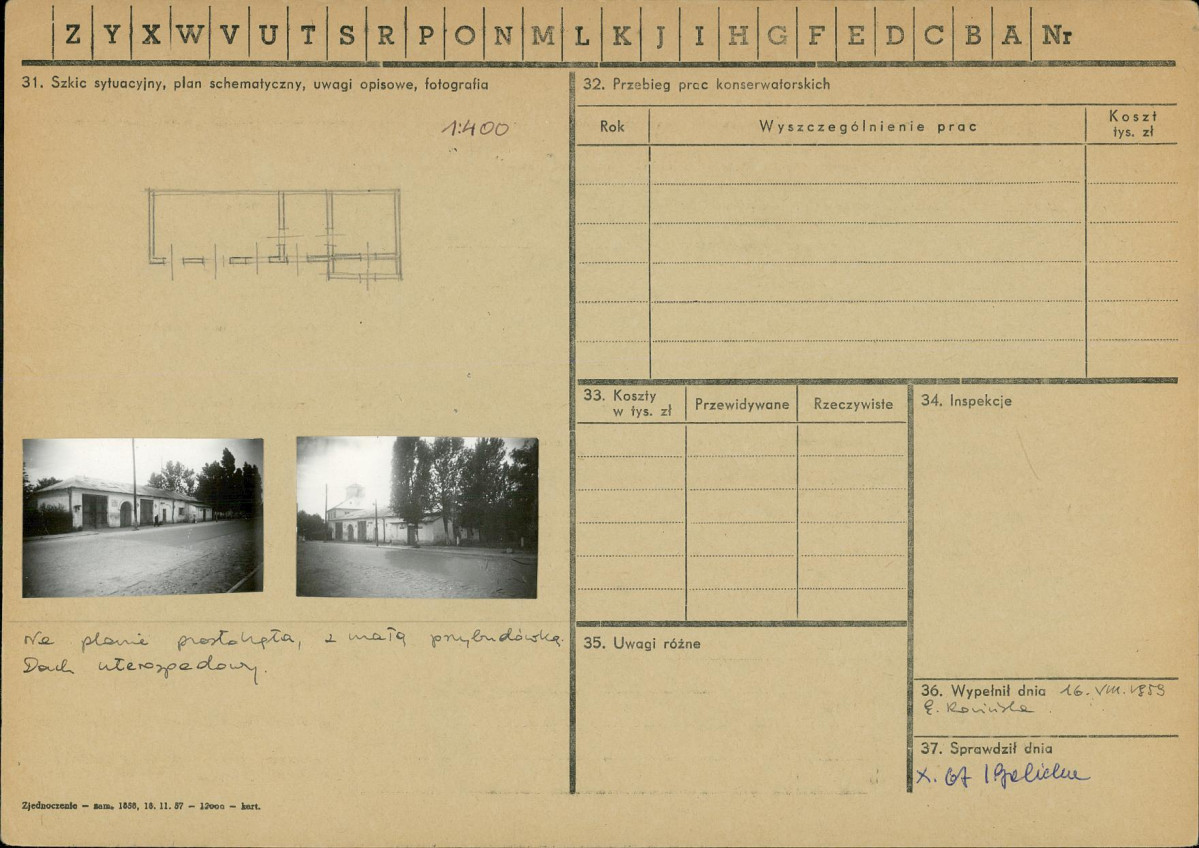 Z Y X W V U T S R P O N M L K J I H G F E D C B A Nr
31. Szkic sytuacyjny, plan schematyczny, uwagi opisowe, fotografia
1:400
Na planie prostokąta, z małą przybudówką.
Dach czterospadowy.
Zjednoczenie – zam. 1858, 18. 11. 57 – 12000 – kart.
32. Przebieg prac konserwatorskich
Rok Wyszczególnienie prac Koszt tys. zł
33. Koszty w tys. zł Przewidywane Rzeczywiste
34. Inspekcje
35. Uwagi różne
36. Wypełnił dnia 16. VIII. 1959
37. Sprawdził dnia
X. 67